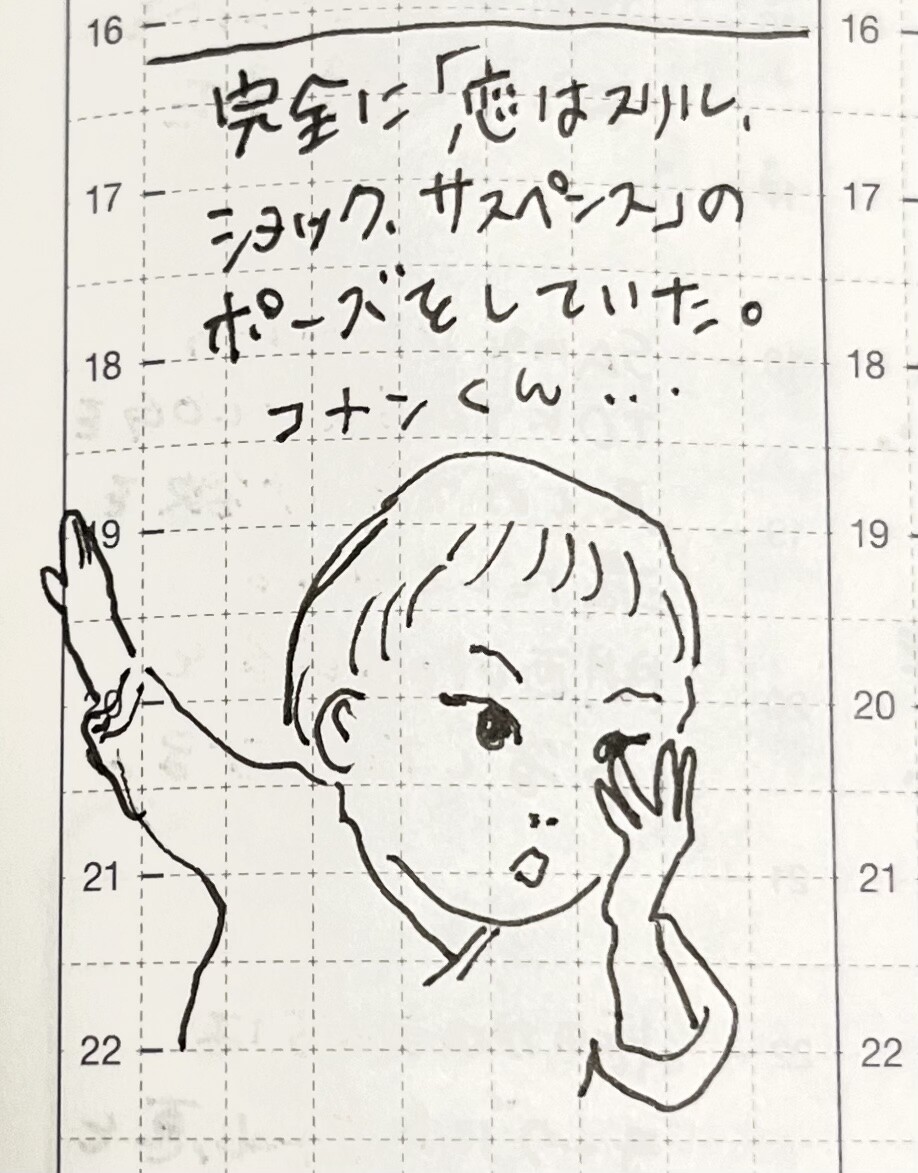 16 16
完全に「恋はスリル、
17 17
ショック、サスペンス」の
ポーズをしていた。
18 18
コナンくん...
19 19
20 20
21 21
22 22